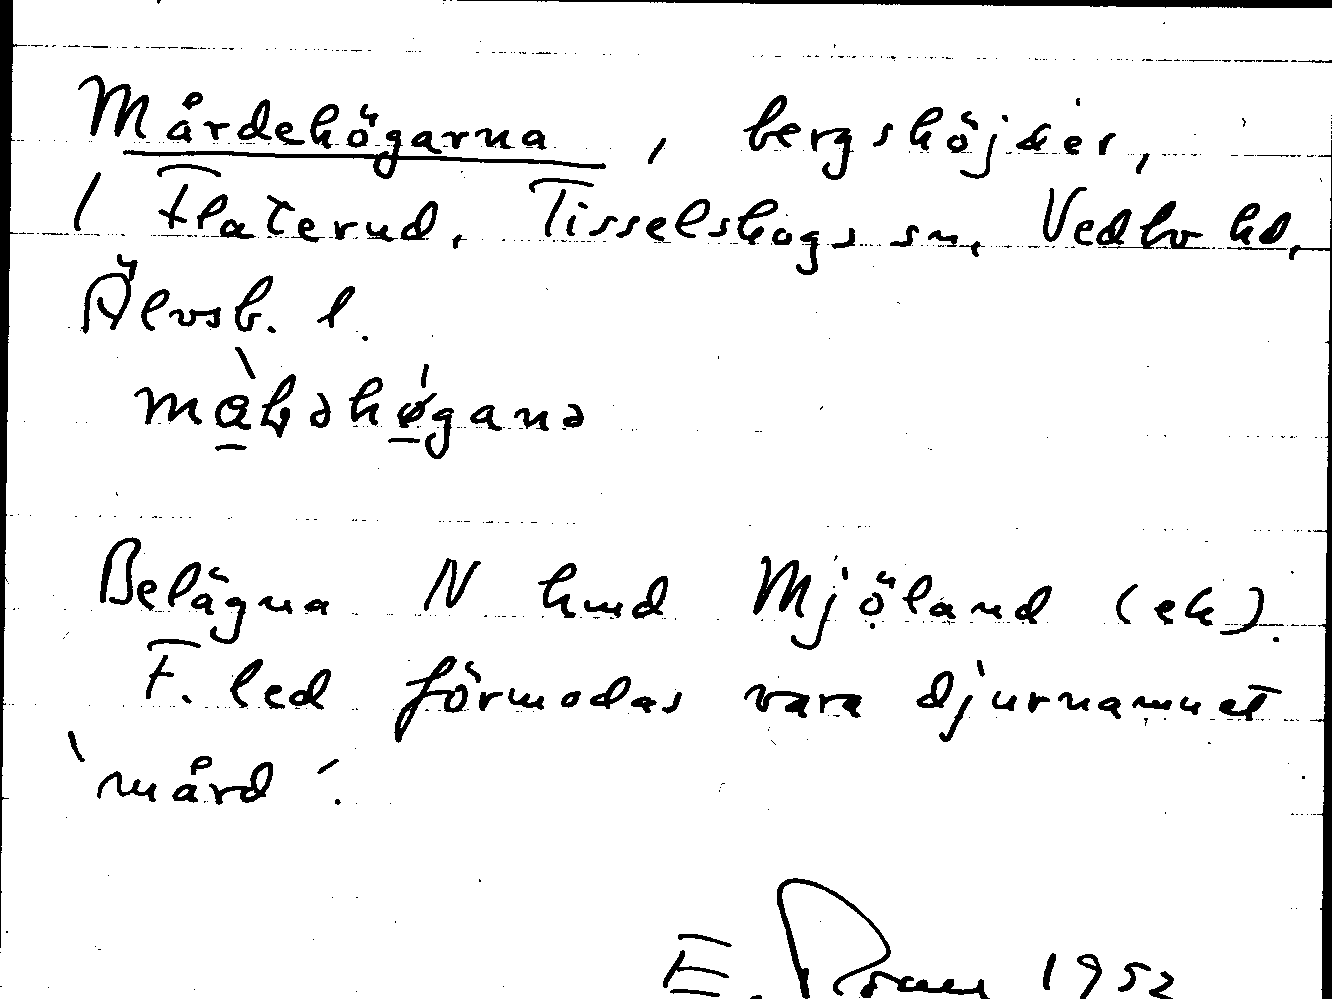 Mårdehögarna, bergshöjder,
i Flaterud, Tisselskogs sn, Vedbo hd,
Älvsb. l.
Belägna N hmd Mjöland (ek).
F. led förmodas vara djurnamnet
`mård´.
E. 1952